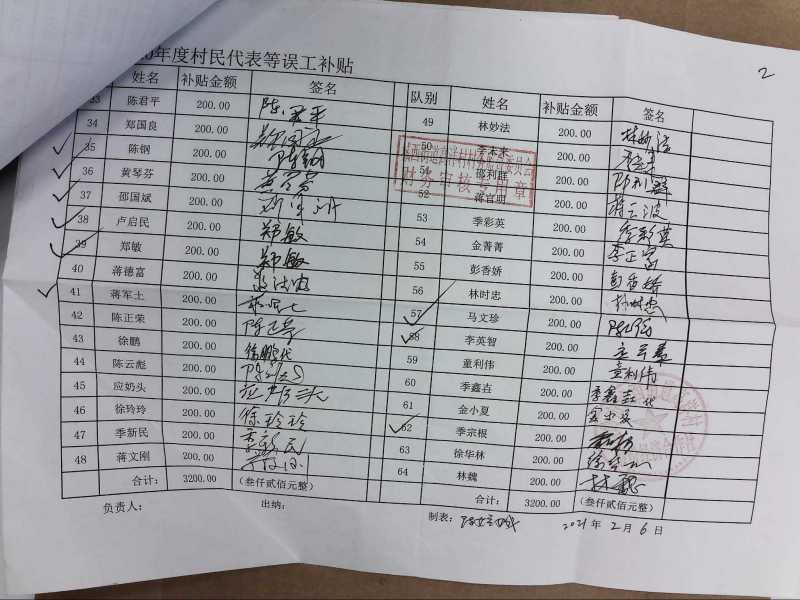 2
年度村民代表等误工补贴
姓名 补贴金额 签名 队别 姓名 补贴金额 签名
33 陈君平 200.00 陈君平 49 林妙法 200.00 林妙法
34 郑国良 200.00 郑国良 50 李未来 200.00
35 陈钢 200.00 陈钢 51 邵利群 200.00
36 黄琴芬 200.00 黄琴芬 52 蒋官明 200.00
37 邵国斌 200.00 53 季彩英 200.00 季彩英
38 卢启民 200.00 郑敏 54 金菁菁 200.00
39 郑敏 200.00 郑敏 55 彭香娇 200.00 彭香娇
40 蒋德富 200.00 56 林时忠 200.00 林时忠
41 蒋军土 200.00 57 马文珍 200.00
42 陈正荣 200.00 陈正荣 58 李英智 200.00
43 徐鹏 200.00 徐鹏代 59 童利伟 200.00 童利伟
44 陈云彪 200.00 60 季鑫垚 200.00 季鑫垚代
45 应奶头 200.00 61 金小夏 200.00 金小夏
46 徐玲玲 200.00 徐玲玲 62 季宗根 200.00
47 季新民 200.00 季新民 63 徐华林 200.00
48 蒋文刚 200.00 64 林魏 200.00 林魏
合计: 3200.00 （叁仟贰佰元整） 合计: 3200.00 （叁仟贰佰元整）
负责人: 出纳: 制表: 2021年2月6日
财务审核专用章